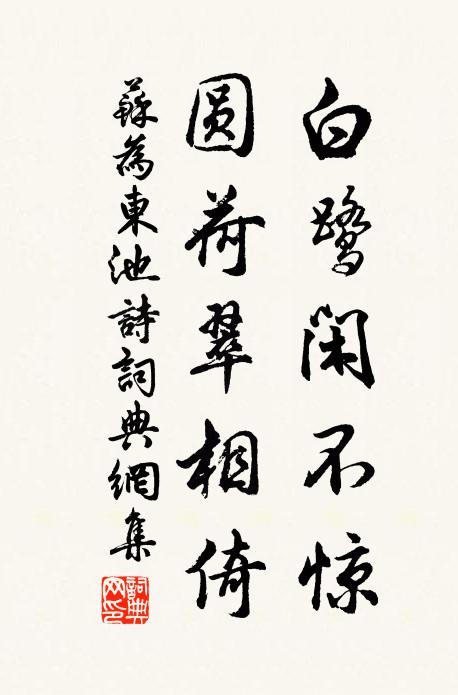 白鹭闲不惊
圆荷翠相倚
蘇為東池詩詞典網集
詞典網印